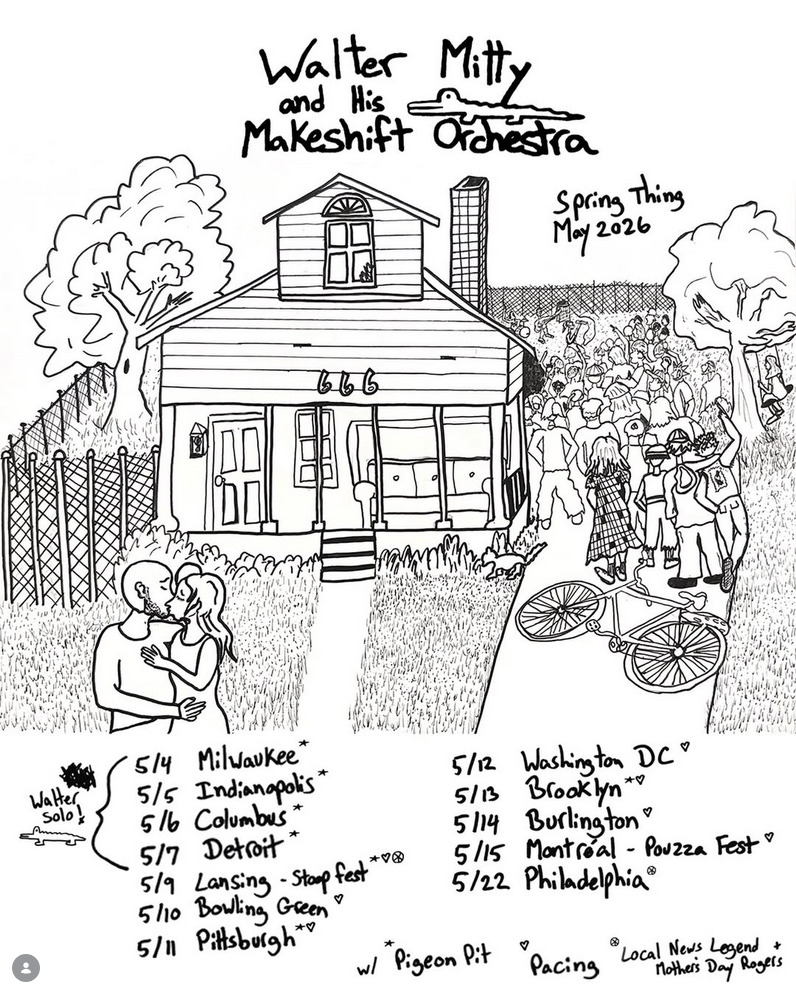 Walter Mitty
and His
Makeshift Orchestra
Spring Thing
May 2026
666
Walter
Solo!
5/4 Milwaukee*
5/5 Indianapolis*
5/6 Columbus*
5/7 Detroit*
5/9 Lansing - Stoop fest*♡⊛
5/10 Bowling Green♡
5/11 Pittsburgh*♡
5/12 Washington DC♡
5/13 Brooklyn*♡
5/14 Burlington♡
5/15 Montréal - Pouzza Fest♡
5/22 Philadelphia⊛
w/ *Pigeon Pit ♡Pacing ⊛Local News Legend +
Mother's Day Rogers